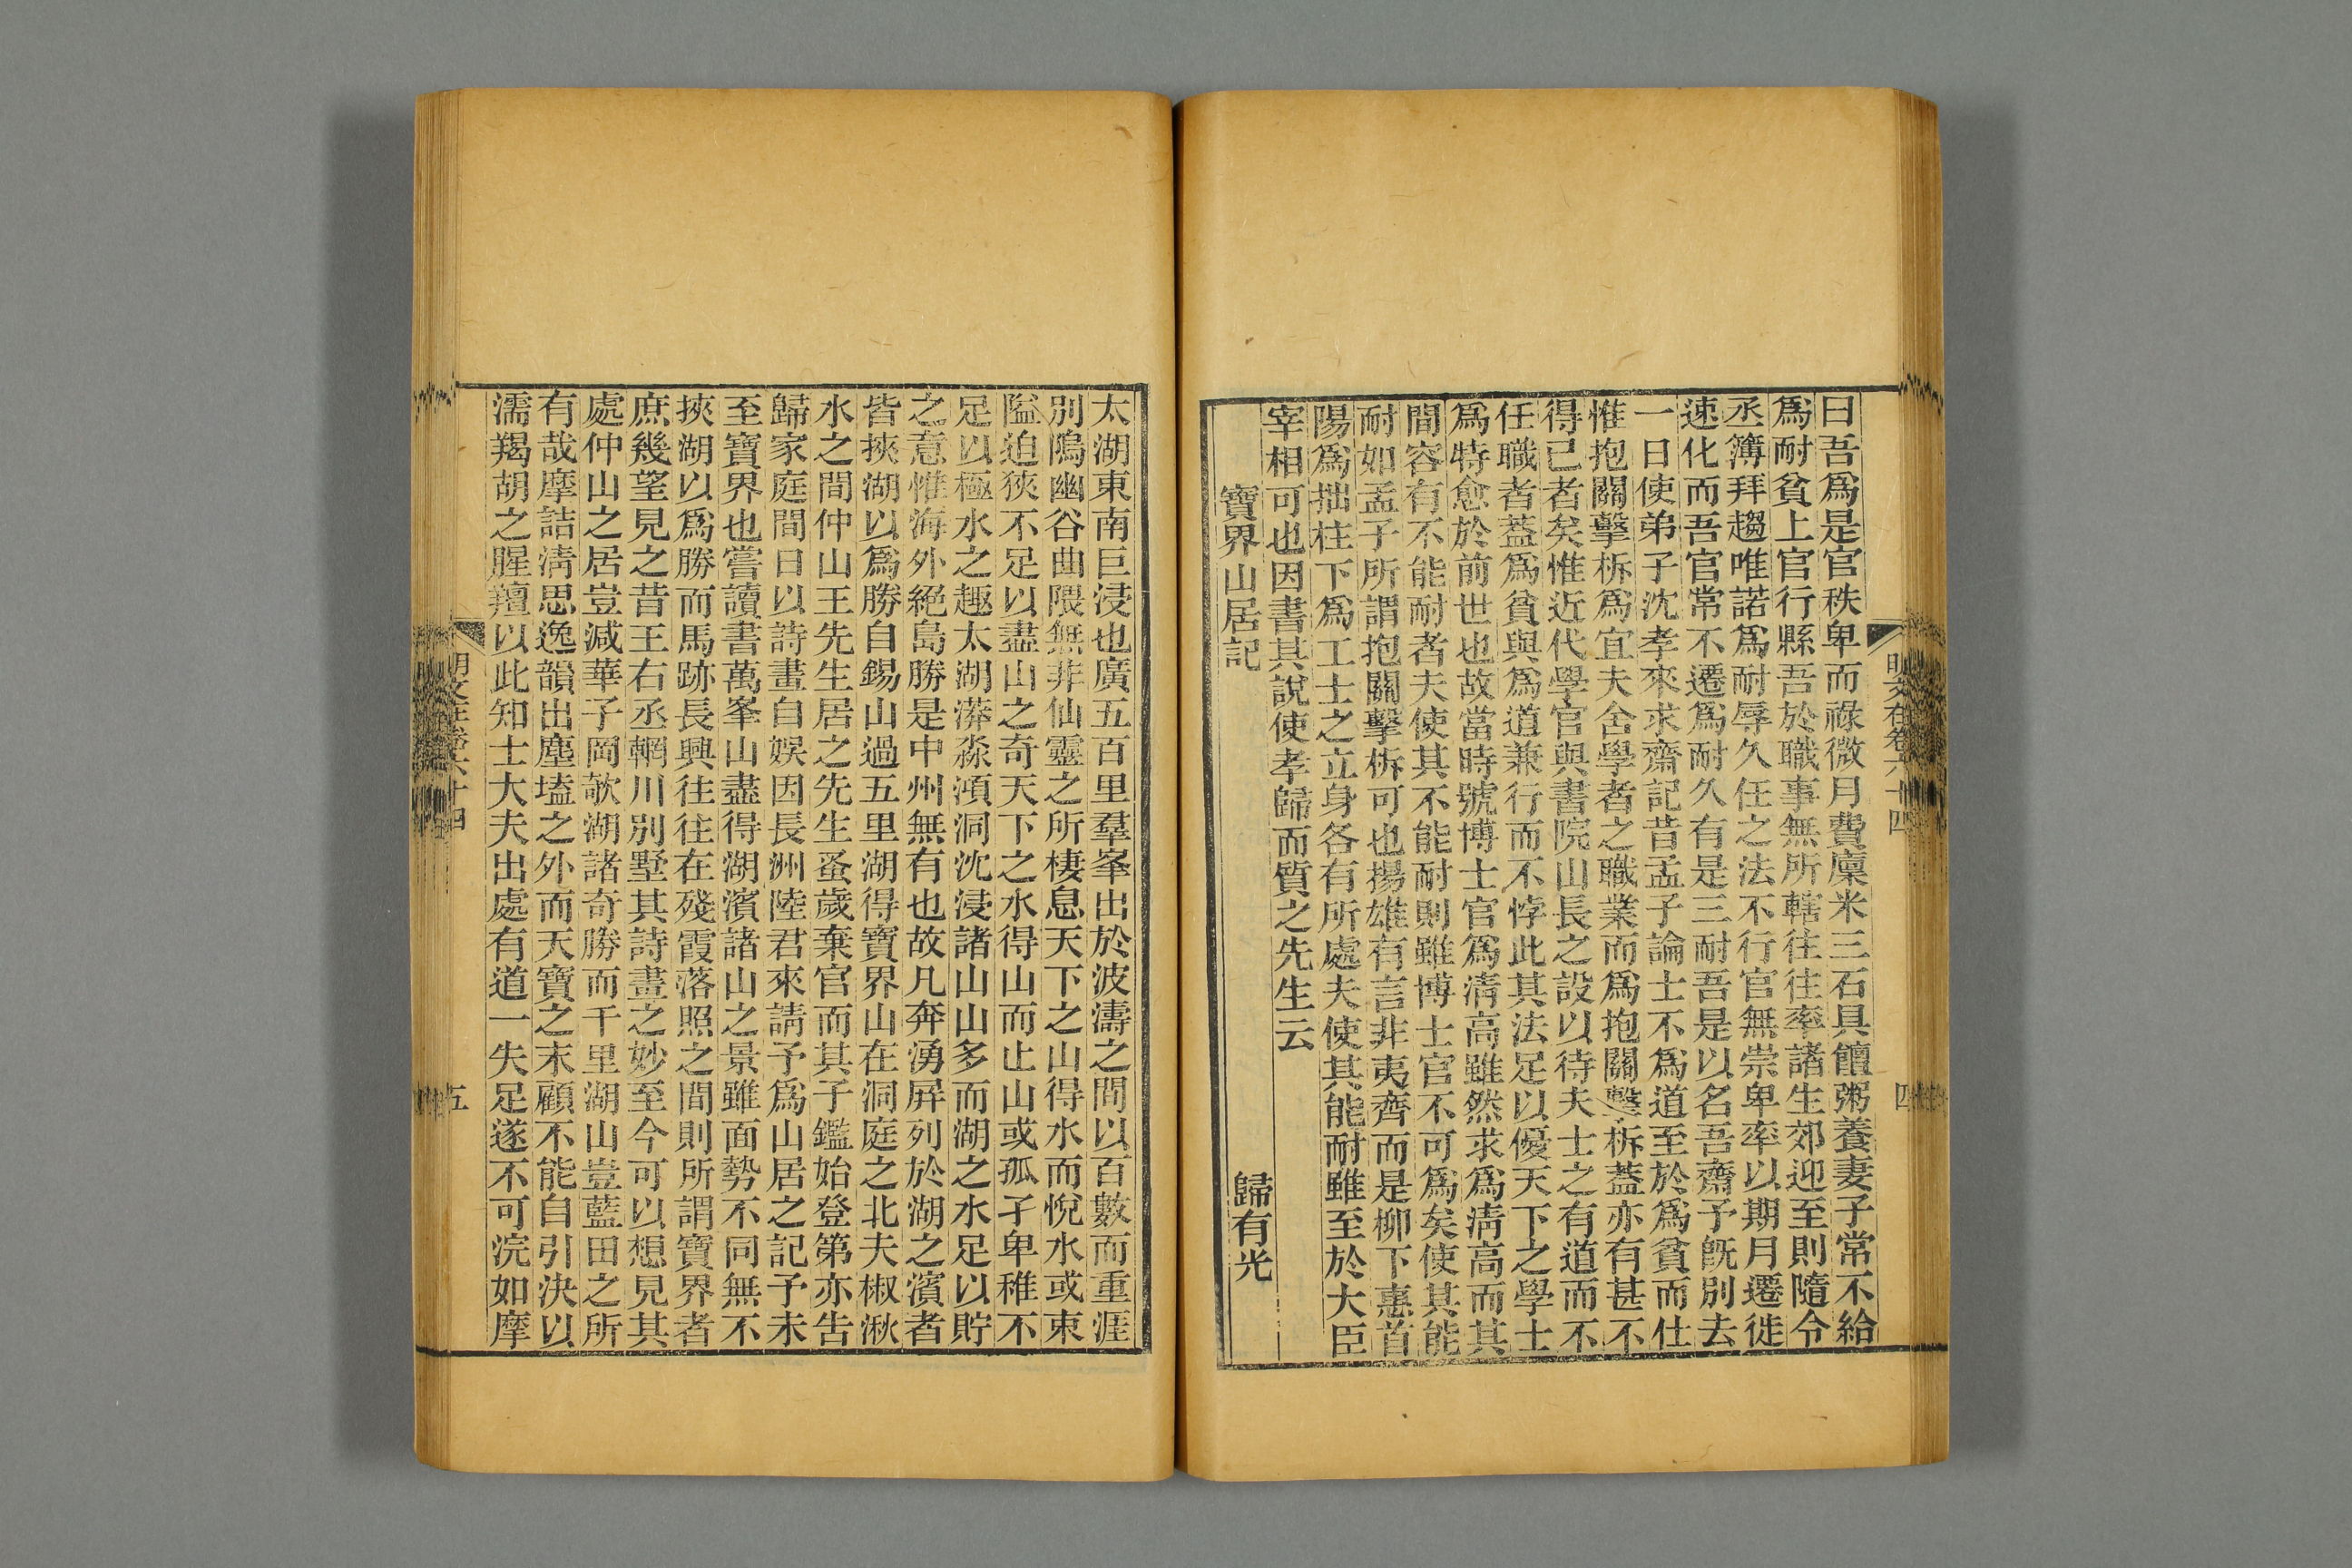 曰吾爲是官秩卑而祿微月費廩米三石具饘粥養妻子常不給
爲耐貧上官行縣吾於職事無所轄往往率諸生郊迎至則隨令
丞簿拜趨唯諾爲耐辱久任之法不行官無崇卑率以期月遷徙
速化而吾官常不遷爲耐久有是三耐吾是以名吾齋予旣別去
一日使弟子沈孝來求齋記昔孟子論士不爲道至於爲貧而仕
惟抱關擊柝爲宜夫舍學者之職業而爲抱關擊柝葢亦有甚不
得已者矣惟近代學官與書院山長之設以待夫士之有道而不
任職者葢爲貧與爲道兼行而不悖此其法足以優天下之學士
爲特愈於前世也故當時號博士官爲淸高雖然求爲淸高而其
間容有不能耐者夫使其不能耐則雖博士官不可爲矣使其能
耐如孟子所謂抱關擊柝可也揚雄有言非夷齊而是柳下惠首
陽爲拙柱下爲工士之立身各有所處夫使其能耐雖至於大臣
宰相可也因書其說使孝歸而質之先生云
寶界山居記 歸有光
明文在卷六十四 四
太湖東南巨浸也廣五百里羣峯出於波濤之間以百數而重涯
別隖幽谷曲隈無非仙靈之所棲息天下之山得水而悅水或束
隘迫狹不足以盡山之奇天下之水得山而止山或孤孑卑稚不
足以極水之趣太湖漭淼澒洞沈浸諸山山多而湖之水足以貯
之意惟海外絕島勝是中州無有也故凡奔湧屛列於湖之濱者
皆挾湖以爲勝自錫山過五里湖得寶界山在洞庭之北夫椒湫
水之間仲山王先生居之先生蚤歲棄官而其子鑑始登第亦告
歸家庭間日以詩畫自娛因長洲陸君來請予爲山居之記予未
至寶界也嘗讀書萬峯山盡得湖濱諸山之景雖面勢不同無不
挾湖以爲勝而馬跡長興往往在殘霞落照之間則所謂寶界者
庶幾望見之昔王右丞輞川別墅其詩畫之妙至今可以想見其
處仲山之居豈減華子岡欹湖諸奇勝而千里湖山豈藍田之所
有哉摩詰淸思逸韻出塵壒之外而天寶之末顧不能自引決以
濡羯胡之腥羶以此知士大夫出處有道一失足遂不可浣如摩
明文在卷六十四 五